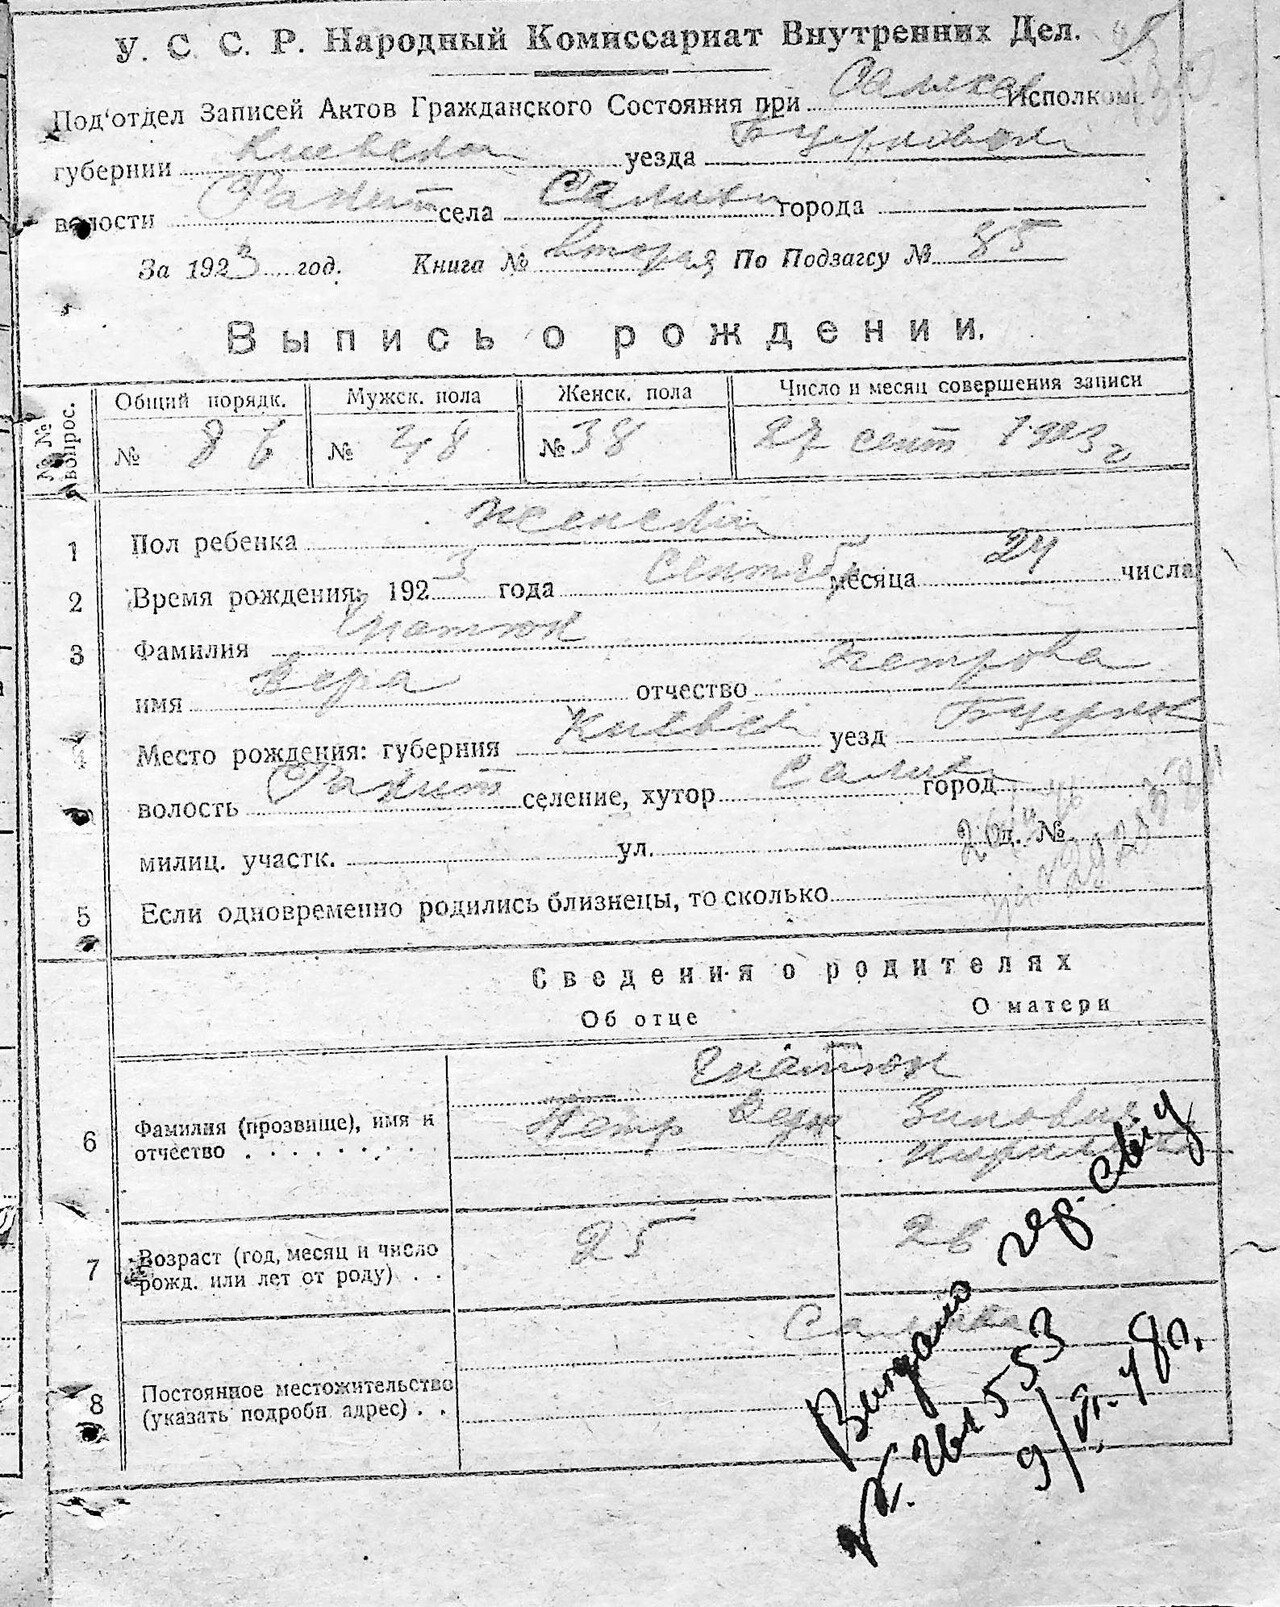 У. С. С. Р. Народный Комиссариат Внутренних Дел.
Под'отдел Записей Актов Гражданского Состояния при Исполком
губернии Киевской уезда
волости Ракит села города
За 1923 год. Книга № вторая По Подзагсу № 85
Выпись о рождении.
№ № вопрос. Общий порядк. Мужск. пола Женск. пола Число и месяц совершения записи
№ 86 № 48 № 38 27 сент 1923 г
1 Пол ребенка женский
2 Время рождения: 1923 года Сентябр месяца 24 числа
3 Фамилия Гнатюк
имя Вера отчество Петрова
4 Место рождения: губерния Киевск уезд
волость Ракит селение, хутор город
милиц. участк. ул. д. №
5 Если одновременно родились близнецы, то сколько
Сведения о родителях
Об отце О матери
Гнатюк
6 Фамилия (прозвище), имя и отчество Петр Зиновия
7 Возраст (год, месяц и число рожд. или лет от роду) 25 26
8 Постоянное местожительство (указать подробн адрес)
Видано